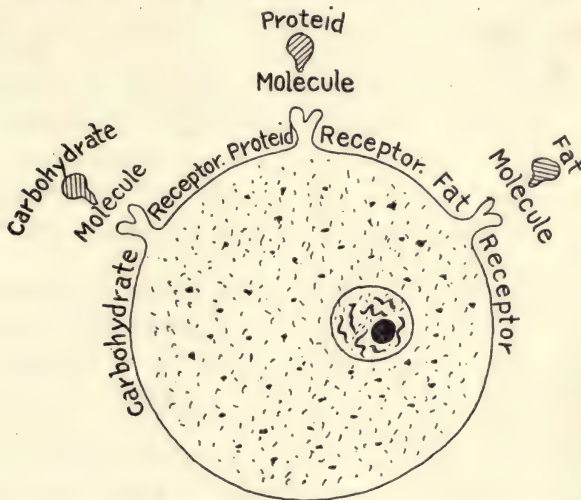 Proteid
Molecule
Carbohydrate
Molecule
Fat
Molecule
Carbohydrate Receptor. Proteid Receptor. Fat Receptor